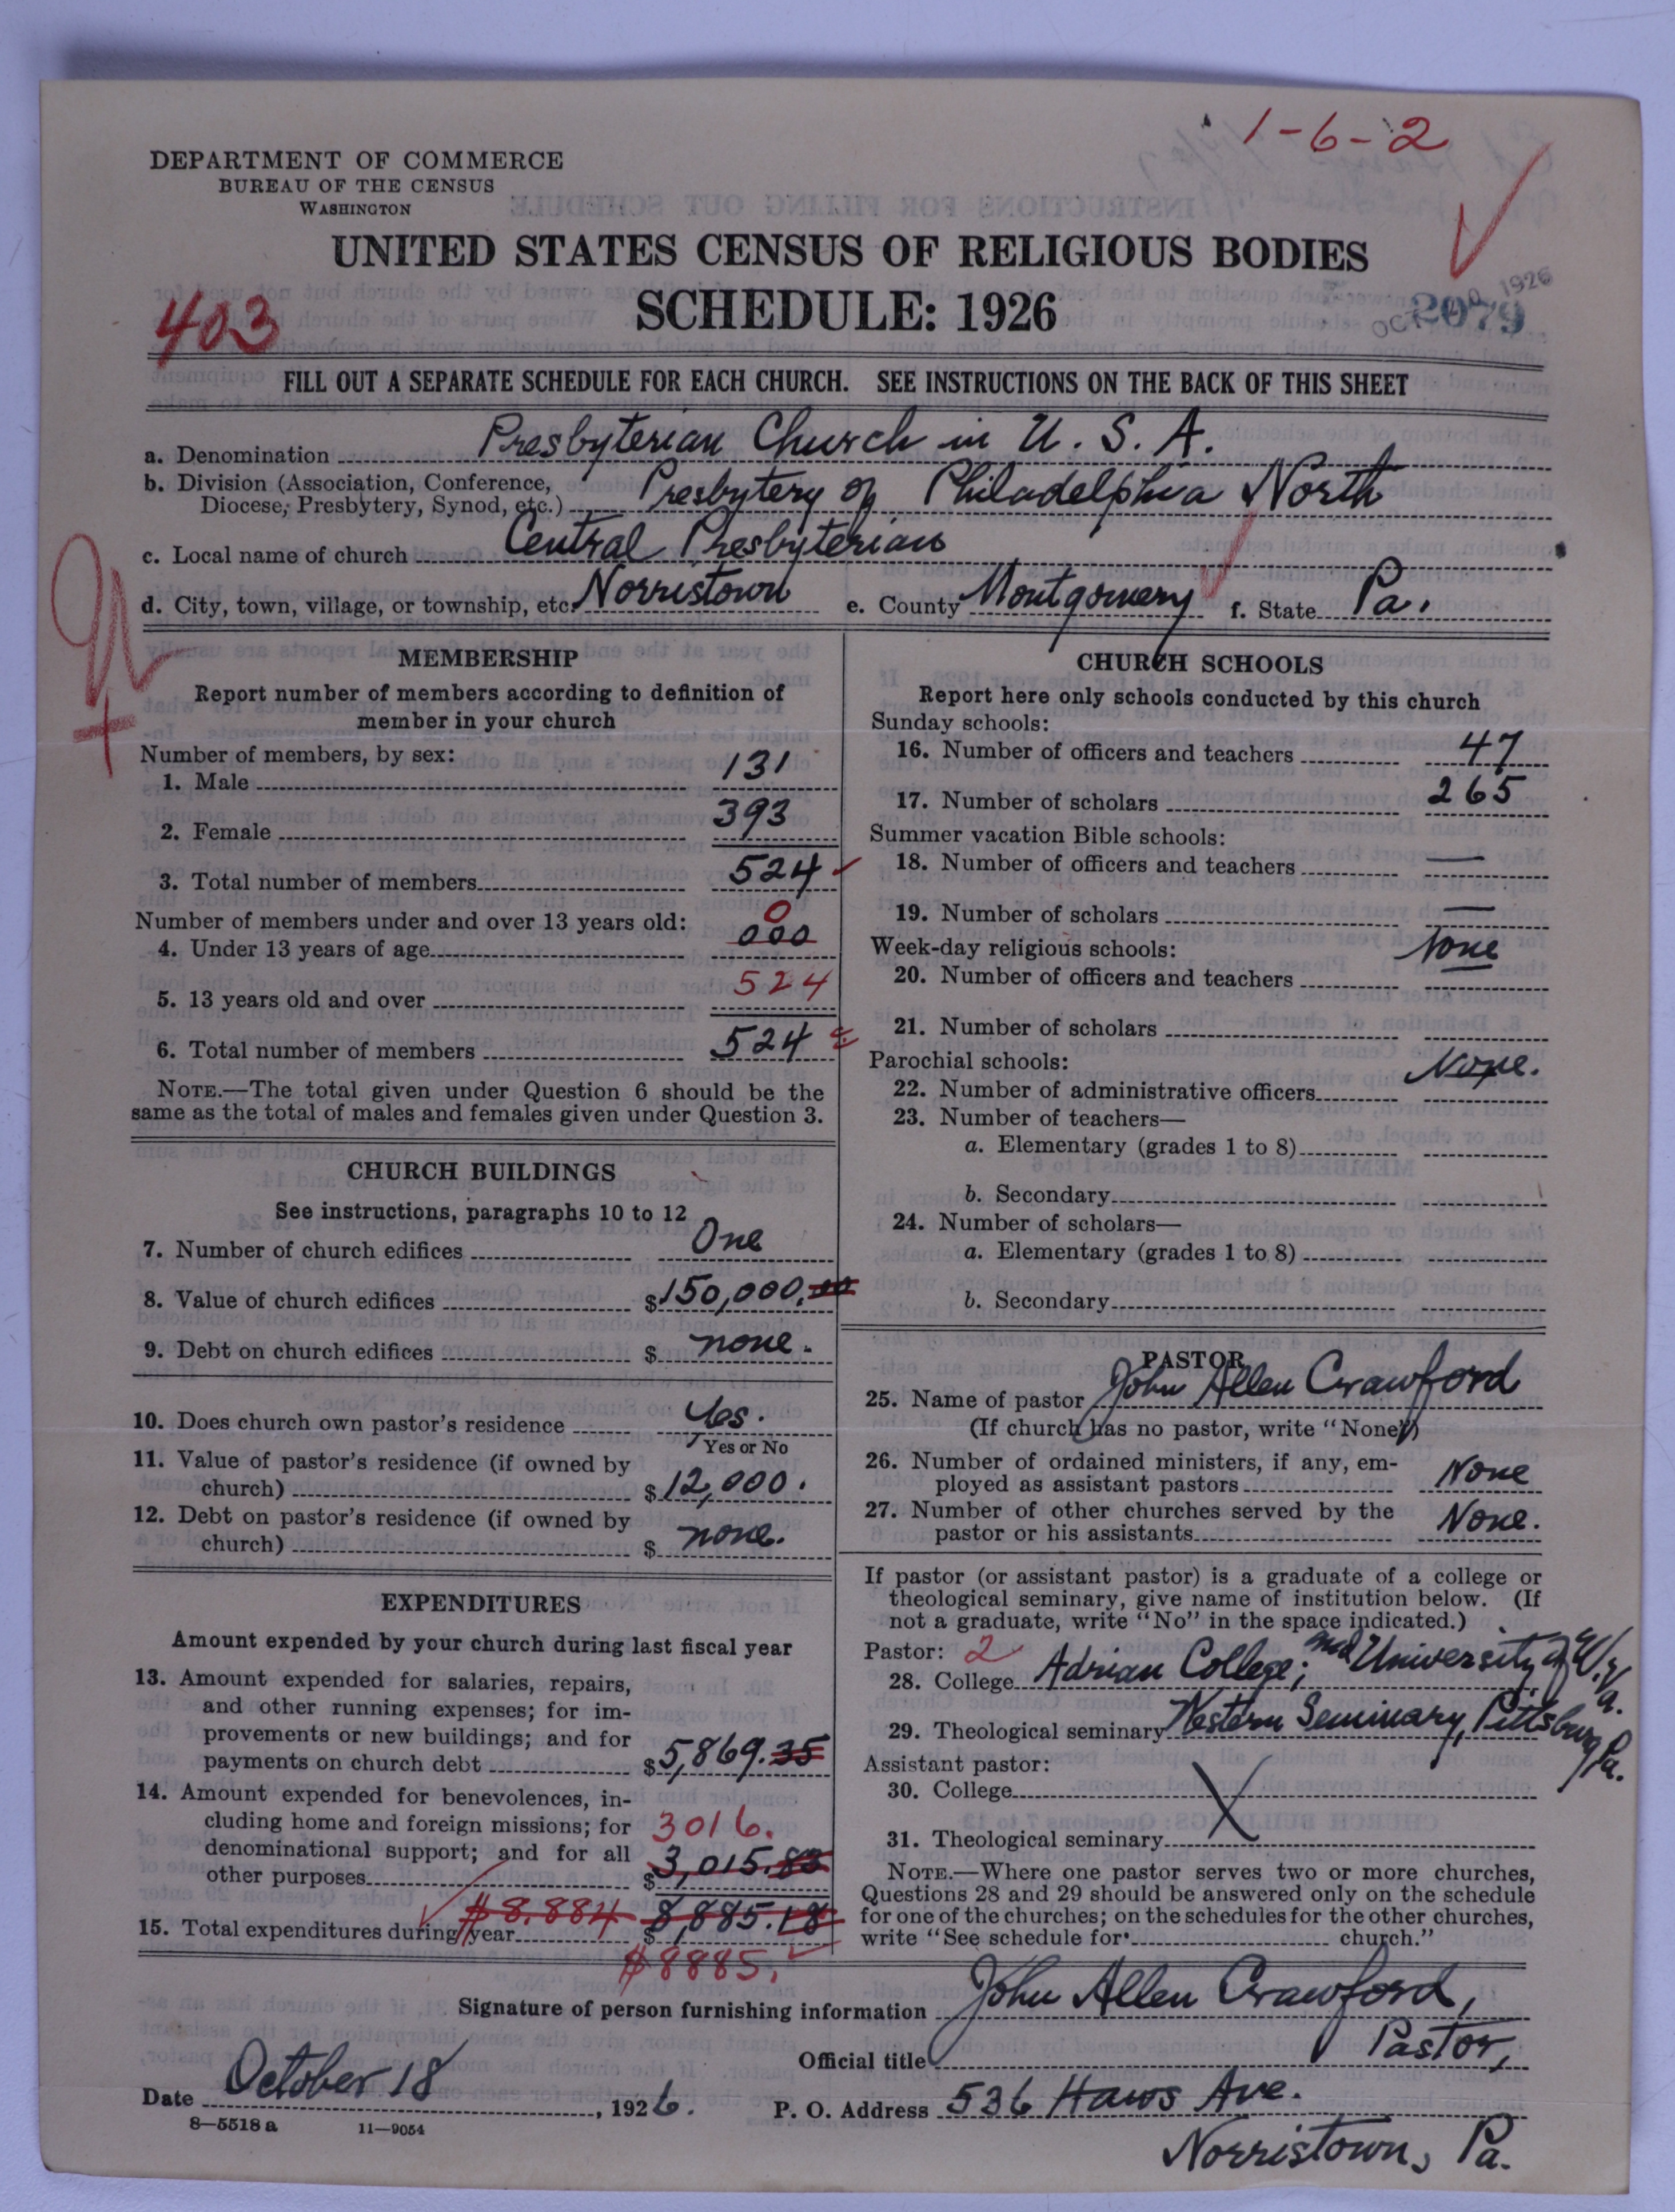 1-6-2
DEPARTMENT OF COMMERCE
BUREAU OF THE CENSUS
WASHINGTON
UNITED STATES CENSUS OF RELIGIOUS BODIES
SCHEDULE: 1926
403
OCT 1926
2079
FILL OUT A SEPARATE SCHEDULE FOR EACH CHURCH. SEE INSTRUCTIONS ON THE BACK OF THIS SHEET
a. Denomination Presbyterian Church in U. S. A.
b. Division (Association, Conference, Diocese, Presbytery, Synod, etc.) Presbytery of Philadelphia North
c. Local name of church Central Presbyterian
d. City, town, village, or township, etc. Norristown e. County Montgomery f. State Pa.
MEMBERSHIP
Report number of members according to definition of
member in your church
Number of members, by sex:
1. Male 131
2. Female 393
3. Total number of members 524
Number of members under and over 13 years old:
0
4. Under 13 years of age 000
5. 13 years old and over 524
6. Total number of members 524
NOTE.—The total given under Question 6 should be the
same as the total of males and females given under Question 3.
CHURCH BUILDINGS
See instructions, paragraphs 10 to 12
7. Number of church edifices One
8. Value of church edifices $150,000.00
9. Debt on church edifices $ none.
10. Does church own pastor's residence Yes.
Yes or No
11. Value of pastor's residence (if owned by
church) $12,000.
12. Debt on pastor's residence (if owned by
church) $ none.
EXPENDITURES
Amount expended by your church during last fiscal year
13. Amount expended for salaries, repairs,
and other running expenses; for im-
provements or new buildings; and for
payments on church debt $5,869.35
14. Amount expended for benevolences, in-
cluding home and foreign missions; for 3016.
denominational support; and for all
other purposes $3,015.83
15. Total expenditures during year $8,884 $8,885.18
$8885.
CHURCH SCHOOLS
Report here only schools conducted by this church
Sunday schools:
16. Number of officers and teachers 47
17. Number of scholars 265
Summer vacation Bible schools:
18. Number of officers and teachers —
19. Number of scholars —
Week-day religious schools: None
20. Number of officers and teachers
21. Number of scholars
Parochial schools: None.
22. Number of administrative officers
23. Number of teachers—
a. Elementary (grades 1 to 8)
b. Secondary
24. Number of scholars—
a. Elementary (grades 1 to 8)
b. Secondary
PASTOR
25. Name of pastor John Allen Crawford
(If church has no pastor, write "None")
26. Number of ordained ministers, if any, em-
ployed as assistant pastors None
27. Number of other churches served by the
pastor or his assistants None.
If pastor (or assistant pastor) is a graduate of a college or
theological seminary, give name of institution below. (If
not a graduate, write "No" in the space indicated.)
Pastor: 2
28. College Adrian College; and University of W. Va.
29. Theological seminary Western Seminary, Pittsburg Pa.
Assistant pastor:
30. College
31. Theological seminary
NOTE.—Where one pastor serves two or more churches,
Questions 28 and 29 should be answered only on the schedule
for one of the churches; on the schedules for the other churches,
write "See schedule for church."
Signature of person furnishing information John Allen Crawford,
Official title Pastor,
Date October 18, 1926. P. O. Address 536 Haws Ave.
8—5518 a 11—9054
Norristown, Pa.